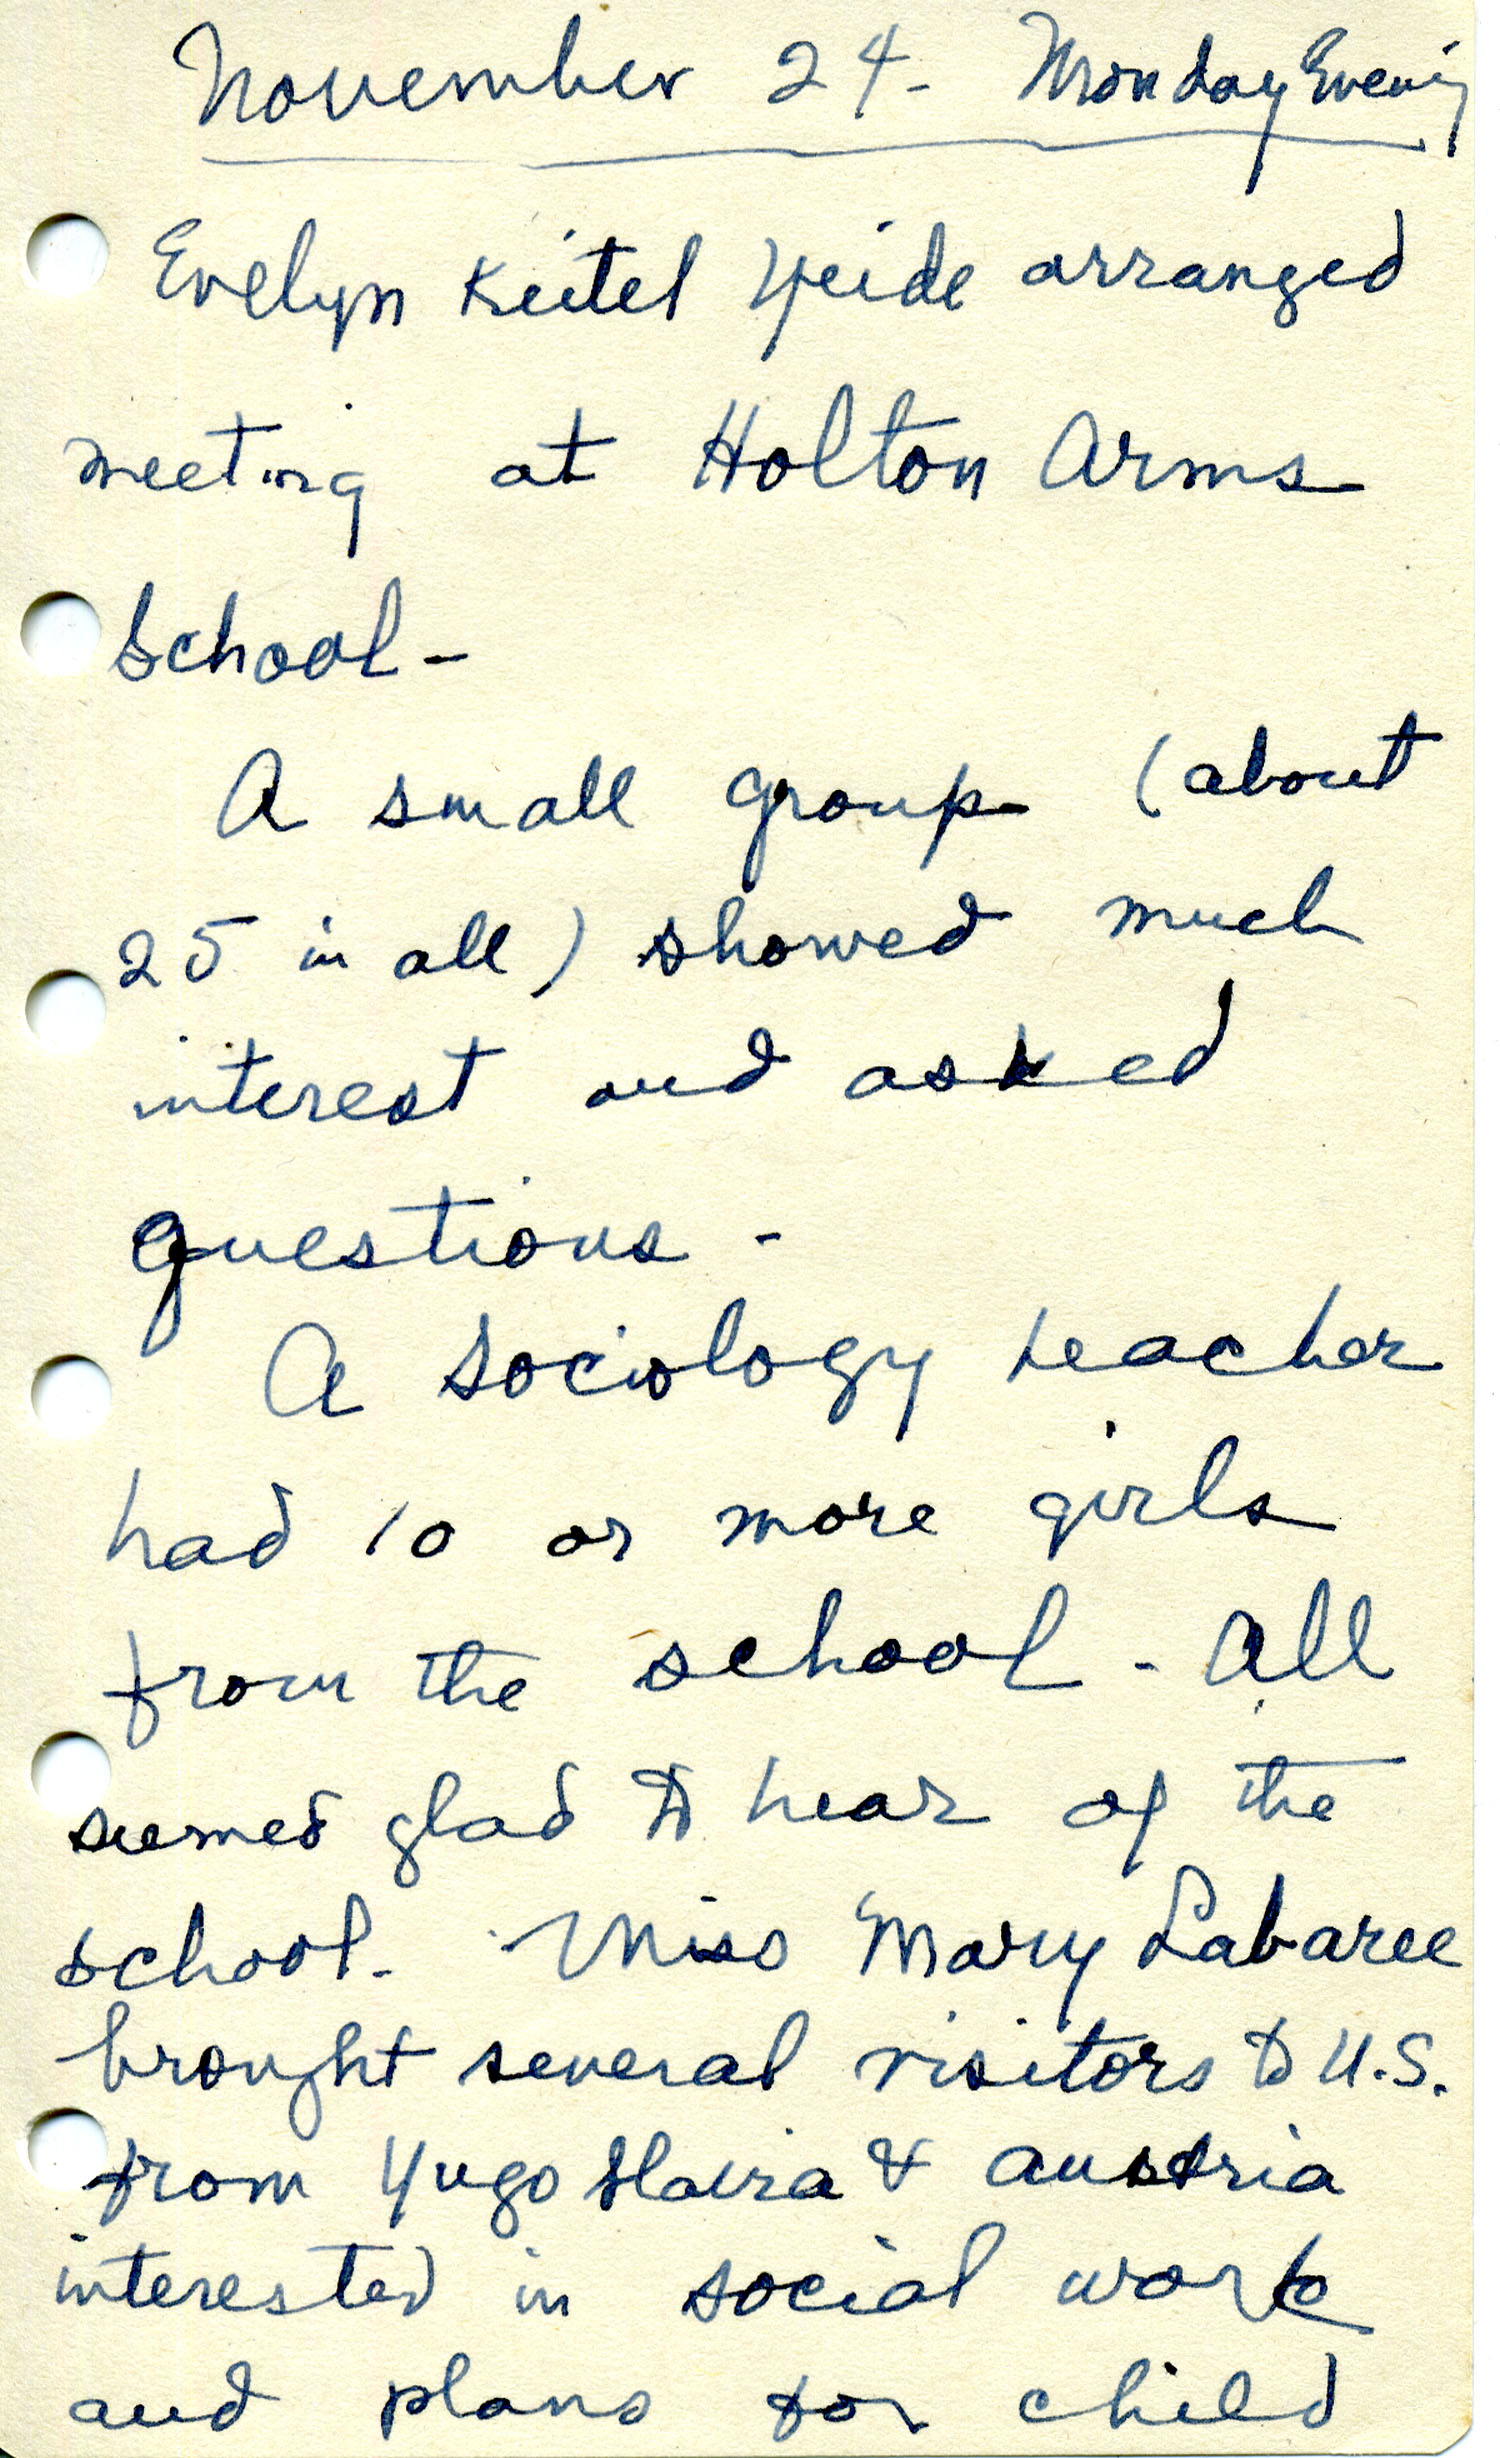 November 24 - Monday Evening
Evelyn Keitel Yeide arranged
meeting at Holton Arms
School -
A small group (about
25 in all) showed much
interest and asked
questions -
A Sociology teacher
had 10 or more girls
from the school - All
seemed glad to hear of the
school - Miss Mary Labaree
brought several visitors to U.S.
from Yugo Slavia & Austria
interested in social work
and plans for child